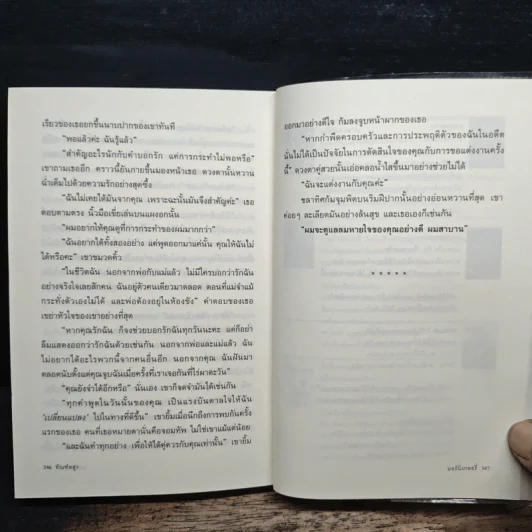 เรียวของเธอยกขึ้นนาบปากของเขาทันที
“พอแล้วค่ะ ฉันรู้แล้ว”
“สำคัญอะไรนักกับคำบอกรัก แค่การกระทำไม่พอหรือ”
เขาถามเธออีก คราวนี้ยันกายขึ้นมองหน้าเธอ ดวงตานั้นหวาน
ฉ่ำเต็มไปด้วยความรักอย่างสุดซึ้ง
“ฉันไม่เคยได้มันจากคุณ เพราะฉะนั้นมันจึงสำคัญค่ะ” เธอ
ตอบตามตรง นิ้วมือเขี่ยเล่นบนแผงอกนั้น
“ผมอยากให้คุณดูที่การกระทำของผมมากกว่า”
“ฉันอยากได้ทั้งสองอย่าง แค่พูดออกมาแค่นั้น คุณให้ฉันไม่
ได้หรือคะ” เขาขมวดคิ้ว
“ในชีวิตฉัน นอกจากพ่อกับแม่แล้ว ไม่มีใครบอกว่ารักฉัน
อย่างจริงใจเลยสักคน ฉันอยู่ตัวคนเดียวมาตลอด ตอนที่แม่จำแม้
กระทั่งตัวเองไม่ได้ และพ่อต้องอยู่ในห้องขัง” คำตอบของเธอ
เขย่าหัวใจของเขาอย่างที่สุด
“หากคุณรักฉัน ก็จงช่วยบอกรักฉันทุกวันนะคะ แต่ก็อย่า
ลืมแสดงออกว่ารักฉันด้วยเช่นกัน นอกจากพ่อและแม่แล้ว ฉัน
ไม่อยากได้อะไรพวกนี้จากคนอื่นอีก นอกจากคุณ ฉันฝันมา
ตลอดนับตั้งแต่คุณจูบฉันเมื่อครั้งที่เราเจอกันที่ไร่ผาตะวัน”
“คุณยังจำได้อีกหรือ” นั่นเอง เขาก็จดจำมันได้เช่นกัน
“ทุกคำพูดในวันนั้นของคุณ เป็นแรงบันดาลใจให้ฉัน
‘เปลี่ยนแปลง’ ไปในทางที่ดีขึ้น” เขายิ้มเมื่อนึกถึงการพบกันครั้ง
แรกของเธอ คนที่เธอหมายตานั่นคือจอมทัพ ไม่ใช่เขาแม้แต่น้อย
“และฉันทำทุกอย่าง เพื่อให้ได้คู่ควรกับคุณเท่านั้น” เขายิ้ม
346
ออกมาอย่างดีใจ ก้มลงจูบหน้าผากของเธอ
“หากกำพืดครอบครัวและการประพฤติตัวของฉันในอดีต
นั้นไม่ได้เป็นปัจจัยในการตัดสินใจของคุณกับการขอแต่งงานครั้ง
นี้” ดวงตาคู่สวยนั้นเอ่อคลอน้ำใสขึ้นมาอย่างช่วยไม่ได้
“ฉันจะแต่งงานกับคุณค่ะ”
ชลาทิศก้มจุมพิตบนริมฝีปากนั้นอย่างอ่อนหวานที่สุด เขา
ค่อยๆ ละเลียดมันอย่างล้นสุข และเธอเองก็เช่นกัน
“ผมจะดูแลลมหายใจของคุณอย่างดี ผมสาบาน”
* * * * *
347